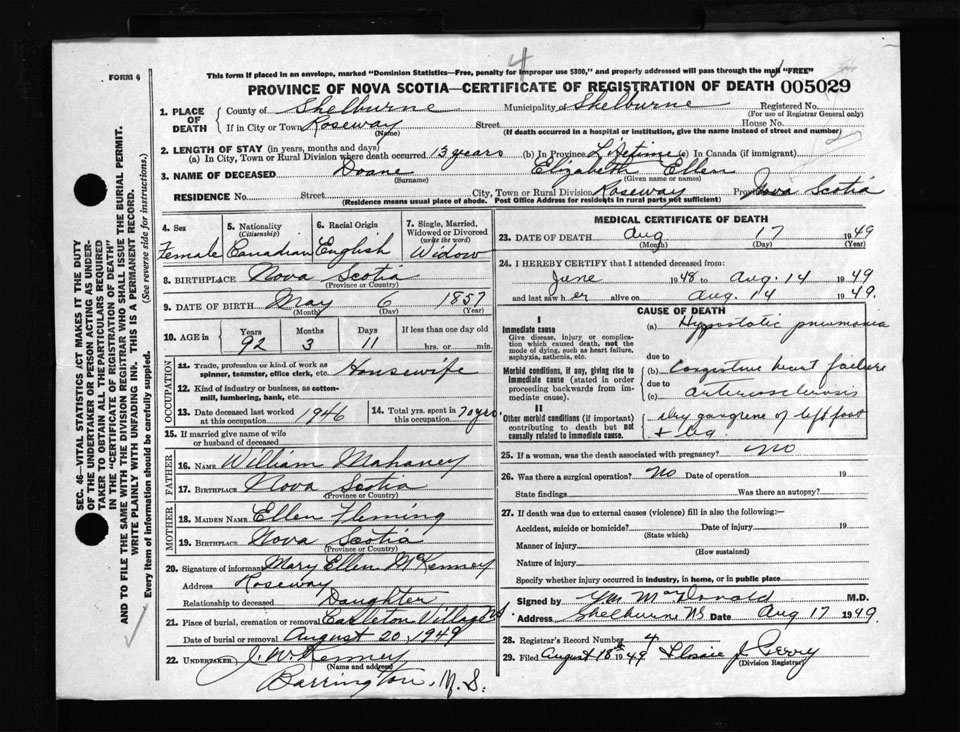 4
FORM 6
This form if placed in an envelope, marked "Dominion Statistics—Free, penalty for improper use $300," and properly addressed will pass through the mail "FREE"
PROVINCE OF NOVA SCOTIA—CERTIFICATE OF REGISTRATION OF DEATH 005029
1. PLACE OF DEATH
County of Shelburne Municipality of Shelburne Registered No.
(For use of Registrar General only)
If in City or Town Roseway Street House No.
(Name) (If death occurred in a hospital or institution, give the name instead of street and number)
2. LENGTH OF STAY (in years, months and days)
(a) In City, Town or Rural Division where death occurred 13 years (b) In Province Lifetime (c) In Canada (if immigrant)
3. NAME OF DECEASED Doane Elizabeth Ellen
(Surname) (Given name or names)
RESIDENCE No. Street City, Town or Rural Division Roseway Province Nova Scotia
(Residence means usual place of abode. Post Office Address for residents in rural parts not sufficient)
4. Sex
Female
5. Nationality
(Citizenship)
Canadian
6. Racial Origin
English
7. Single, Married, Widowed or Divorced
(write the word)
Widow
8. BIRTHPLACE Nova Scotia
(Province or Country)
9. DATE OF BIRTH May 6 1857
(Month) (Day) (Year)
10. AGE in Years Months Days If less than one day old
92 3 11 hrs. or min.
OCCUPATION
11. Trade, profession or kind of work as spinner, teamster, office clerk, etc. Housewife
12. Kind of industry or business, as cotton-mill, lumbering, bank, etc.
13. Date deceased last worked at this occupation 1946
14. Total yrs. spent in this occupation 70 yrs.
15. If married give name of wife or husband of deceased
FATHER
16. NAME William Mahaney
17. BIRTHPLACE Nova Scotia
(Province or Country)
MOTHER
18. MAIDEN NAME Ellen Fleming
19. BIRTHPLACE Nova Scotia
(Province or Country)
20. Signature of informant Mary Ellen McKenney
Address Roseway
Relationship to deceased Daughter
21. Place of burial, cremation or removal Carleton Village N.S.
Date of burial or removal August 20, 1949
22. UNDERTAKER J. W. Kenney
(Name and address)
Barrington, N. S.
MEDICAL CERTIFICATE OF DEATH
23. DATE OF DEATH Aug 17 1949
(Month) (Day) (Year)
24. I HEREBY CERTIFY that I attended deceased from:
June 1948 to Aug. 14 1949
and last saw her alive on Aug. 14 1949.
CAUSE OF DEATH
I
Immediate cause
Give disease, injury or complication which caused death, not the mode of dying, such as heart failure, asphyxia, asthenia, etc.
(a) Hypostatic pneumonia
due to
Morbid conditions, if any, giving rise to immediate cause (stated in order proceeding backwards from immediate cause).
(b) Congestive heart failure
due to
(c) arteriosclerosis
II
Other morbid conditions (if important) contributing to death but not causally related to immediate cause.
dry gangrene of left foot
+ leg.
25. If a woman, was the death associated with pregnancy? No
26. Was there a surgical operation? No Date of operation 19
State findings Was there an autopsy?
27. If death was due to external causes (violence) fill in also the following:—
Accident, suicide or homicide? Date of injury 19
(State which)
Manner of injury
(How sustained)
Nature of injury
Specify whether injury occurred in industry, in home, or in public place
Signed by MacDonald M.D.
Address Shelburne N.S. Date Aug 17 1949
28. Registrar's Record Number 4
29. Filed August 18th 1949 J. Perry
(Division Registrar)
SEC. 46—VITAL STATISTICS ACT MAKES IT THE DUTY
OF THE UNDERTAKER OR PERSON ACTING AS UNDER-
TAKER TO OBTAIN ALL THE PARTICULARS REQUIRED
IN THE "CERTIFICATE OF REGISTRATION OF DEATH"
AND TO FILE THE SAME WITH THE DIVISION REGISTRAR WHO SHALL ISSUE THE BURIAL PERMIT.
WRITE PLAINLY WITH UNFADING INK. THIS IS A PERMANENT RECORD.
Every item of information should be carefully supplied. (See reverse side for instructions.)